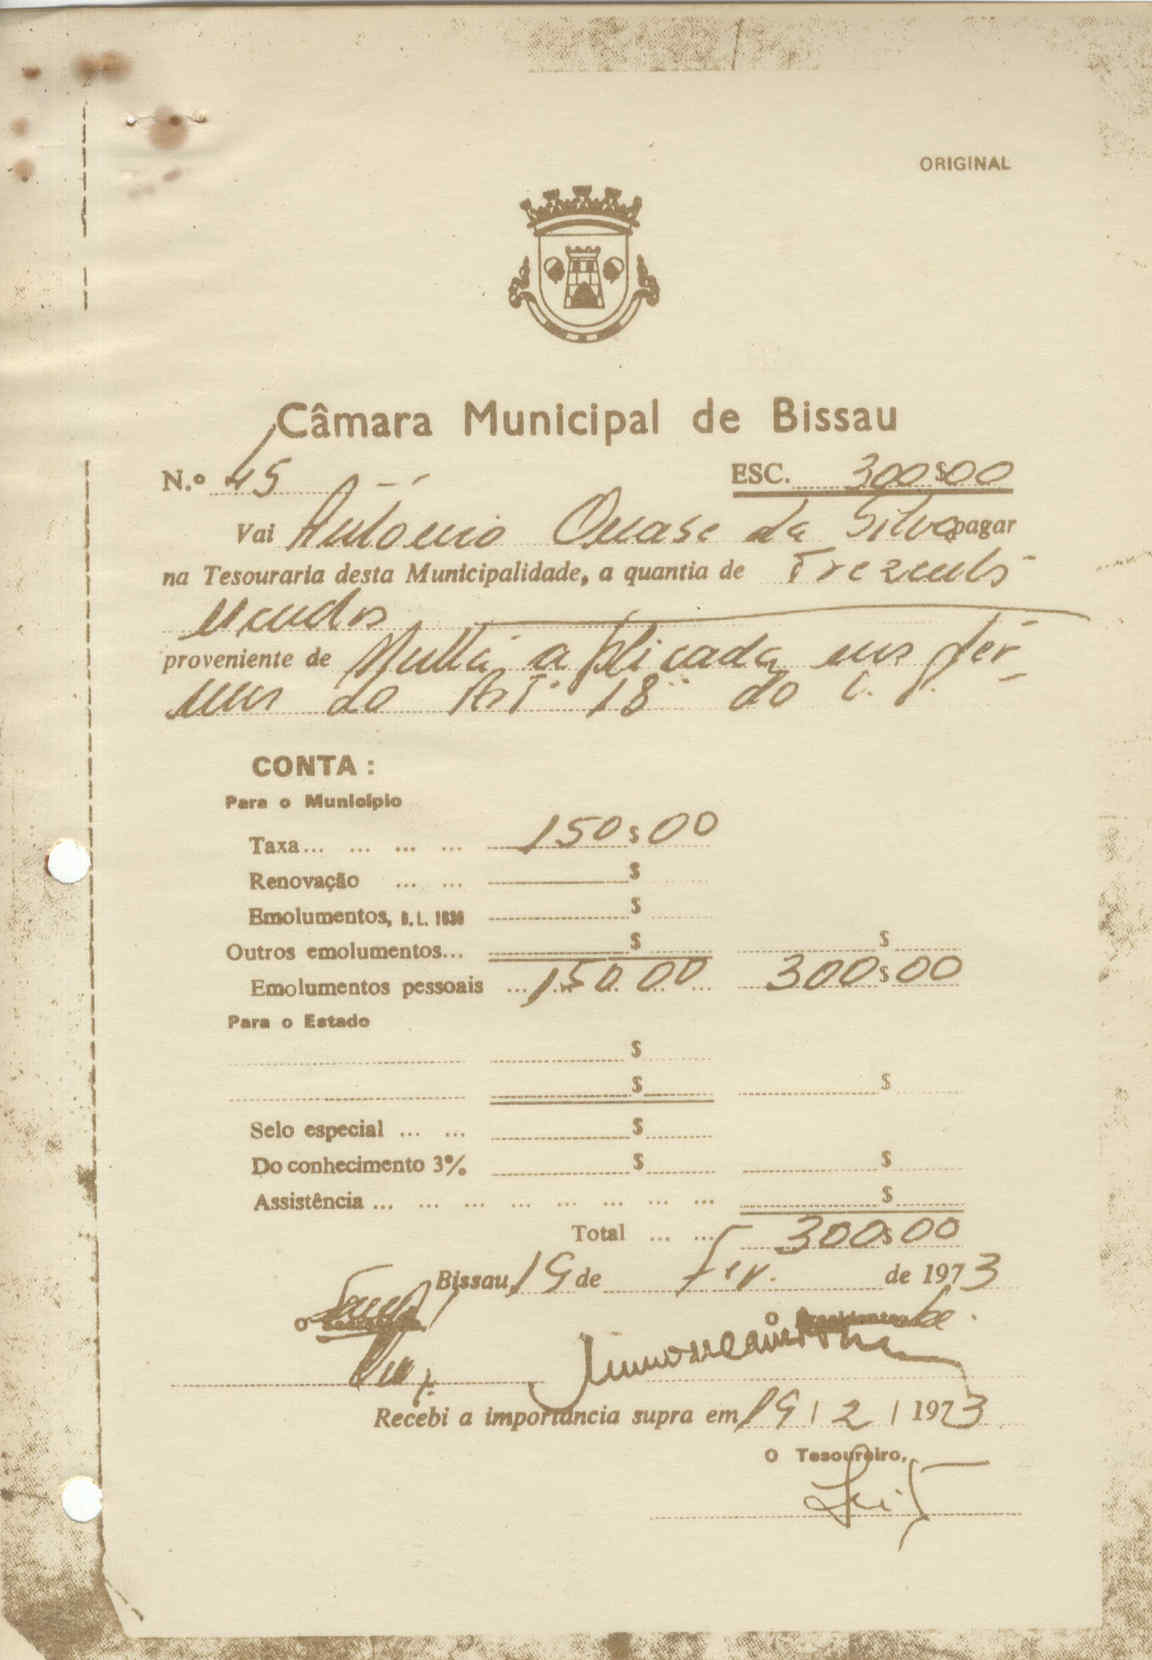 ORIGINAL
Câmara Municipal de Bissau
N.º 45 ESC. 300$00
Vai António Quase da Silva pagar
na Tesouraria desta Municipalidade, a quantia de Trezentos
escudos
proveniente de Multa aplicada nos ter-
mos do Artº 18º do C. P.
CONTA :
Para o Município
Taxa... ... ... ... 150$00
Renovação ... ... $
Emolumentos, D.L. 1630 $
Outros emolumentos... $ $
Emolumentos pessoais ... 150.00 300$00
Para o Estado
$
$ $
Selo especial ... ... $
Do conhecimento 3% $ $
Assistência ... ... ... ... ... ... ... ... $
Total ... ... 300$00
Bissau, 19 de Fev. de 1973
O O
Recebi a importância supra em 19 / 2 / 1973
O Tesoureiro,